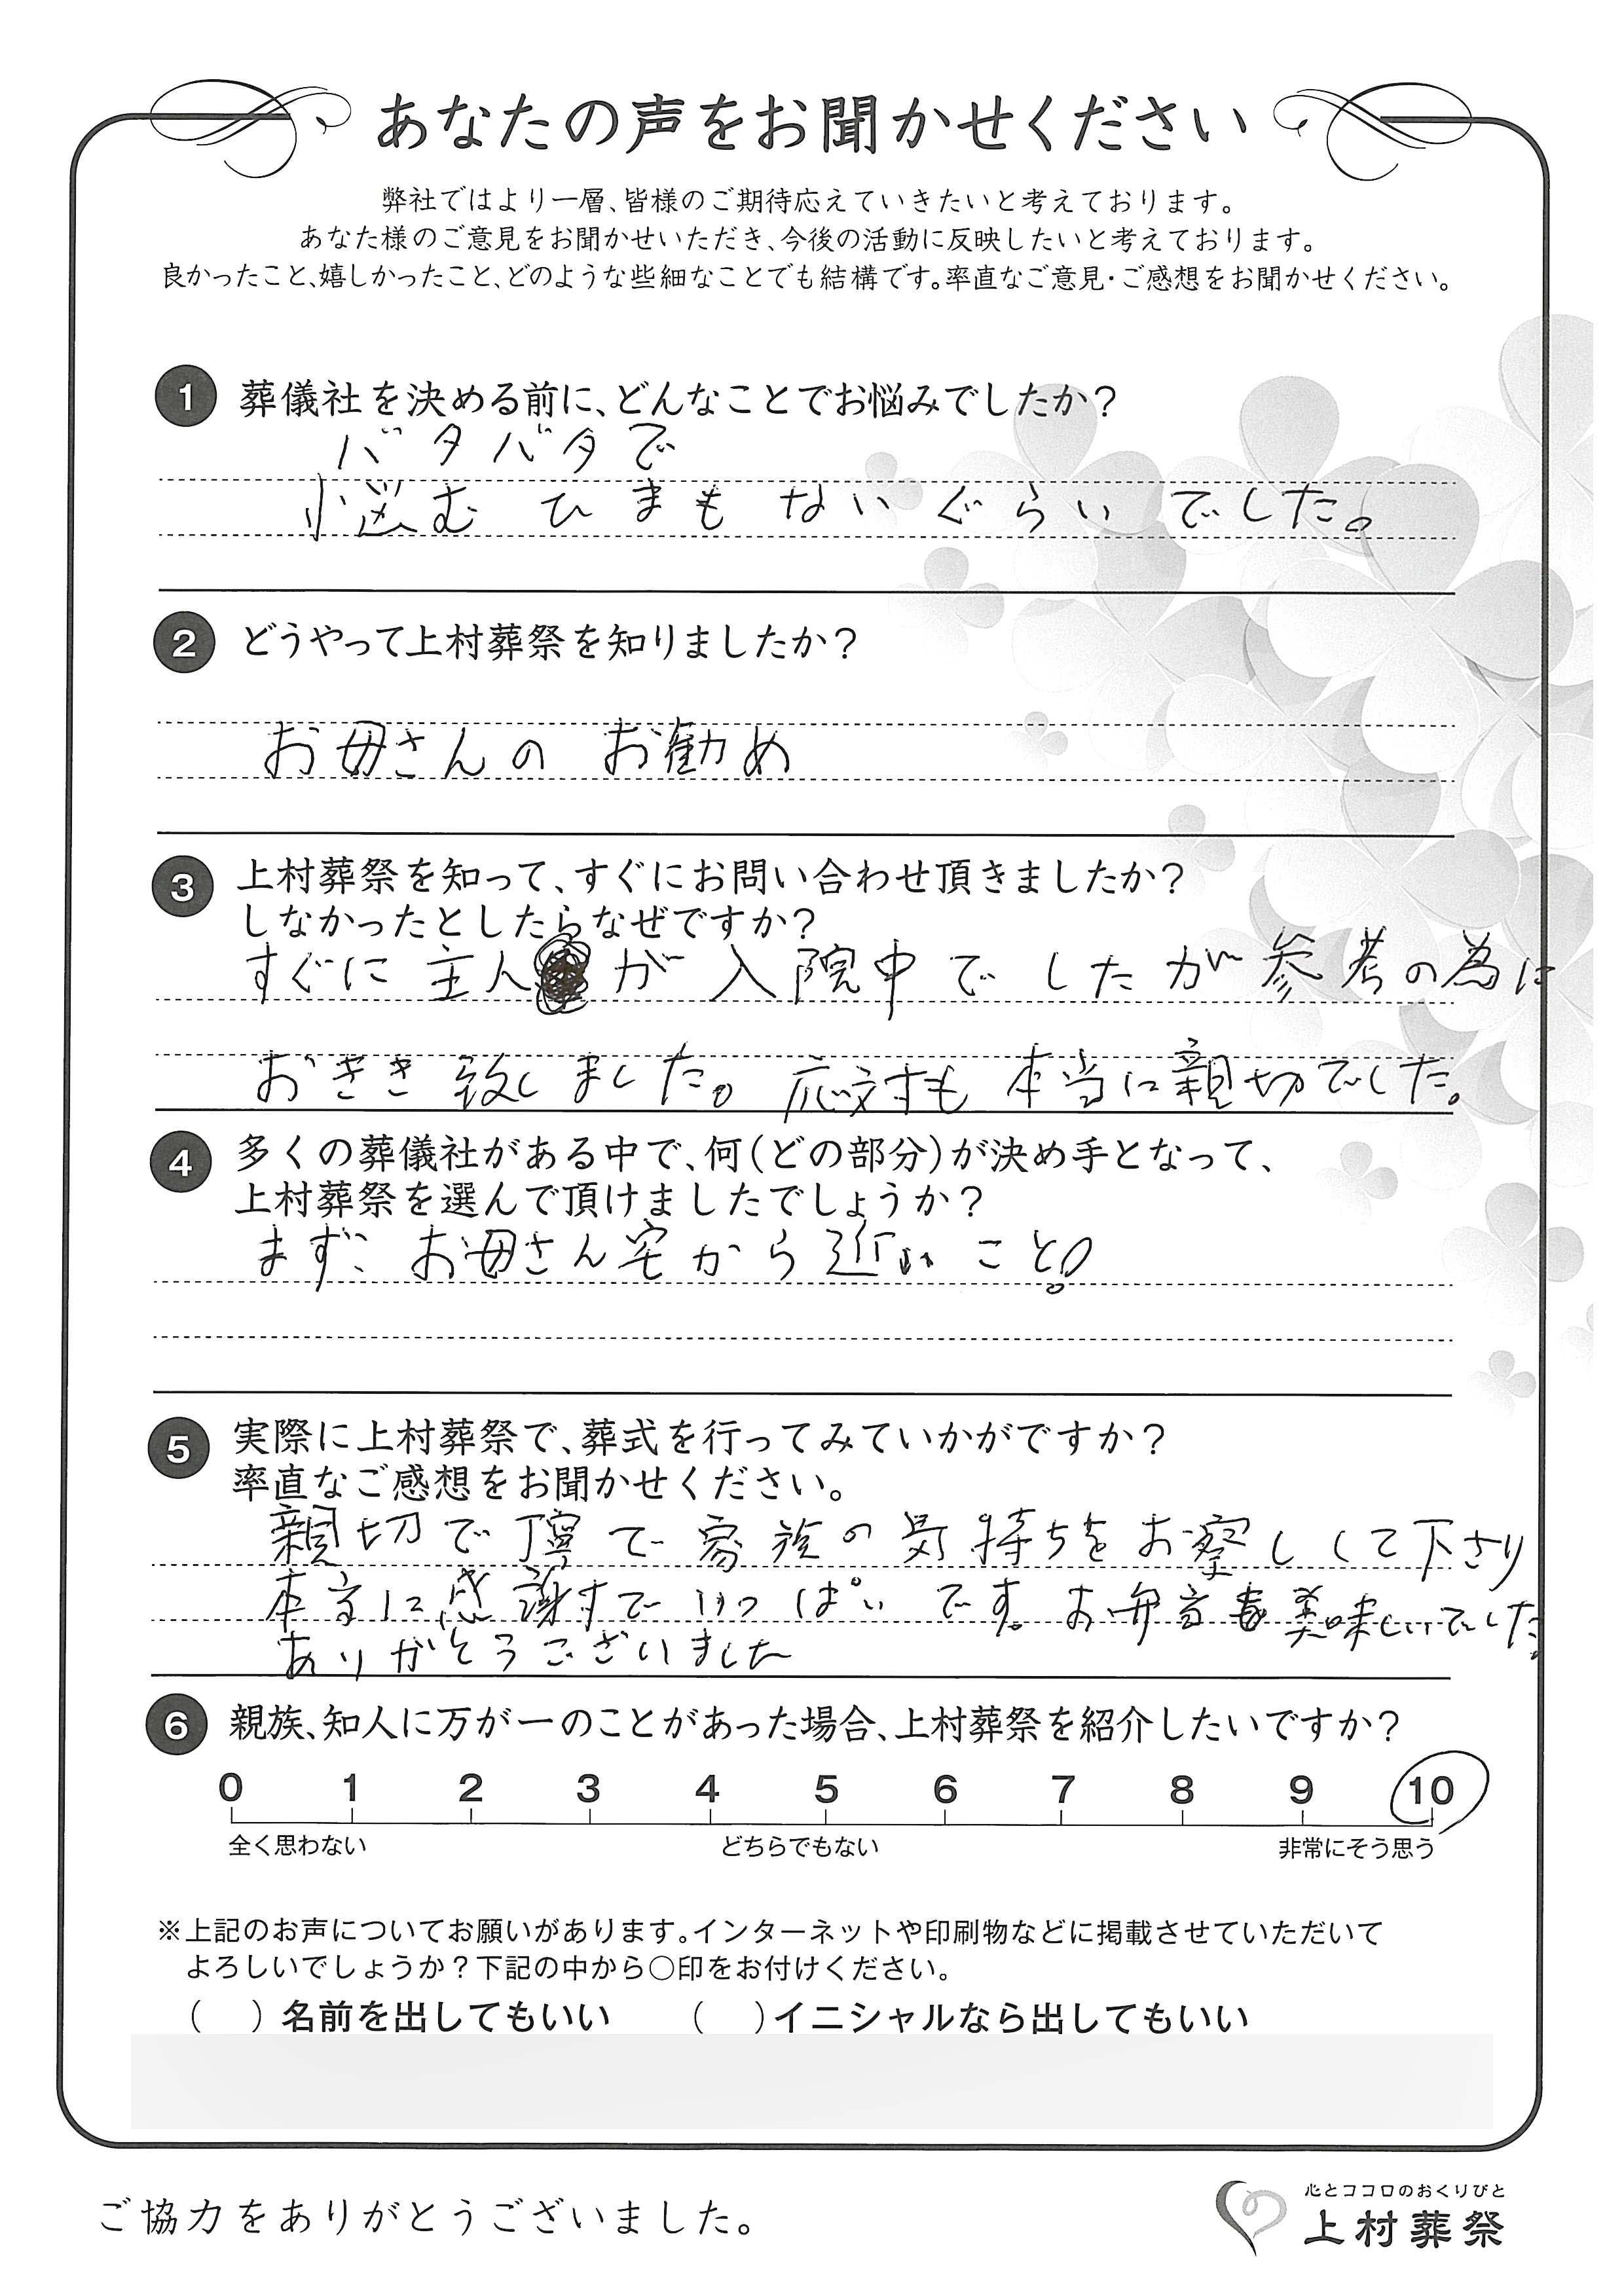 あなたの声をお聞かせください
弊社ではより一層、皆様のご期待応えていきたいと考えております。
あなた様のご意見をお聞かせいただき、今後の活動に反映したいと考えております。
良かったこと、嬉しかったこと、どのような些細なことでも結構です。率直なご意見・ご感想をお聞かせください。
1 葬儀社を決める前に、どんなことでお悩みでしたか?
バタバタで
悩む ひまも ない ぐらい でした。
2 どうやって上村葬祭を知りましたか?
お母さんの お勧め
3 上村葬祭を知って、すぐにお問い合わせ頂きましたか?
しなかったとしたらなぜですか?
すぐに 主人 が 入院中で したが 参考の為に
おきき致しました。応対も 本当に親切でした。
4 多くの葬儀社がある中で、何(どの部分)が決め手となって、
上村葬祭を選んで頂けましたでしょうか?
まず、お母さん宅から近い こと。
5 実際に上村葬祭で、葬式を行ってみていかがですか?
率直なご感想をお聞かせください。
親切で丁寧で家族の気持ちをお察しして下さり
本当に感謝すでいっぱいです。お弁当も美味しいでした。
ありがとうございました
6 親族、知人に万が一のことがあった場合、上村葬祭を紹介したいですか?
0 1 2 3 4 5 6 7 8 9 10
全く思わない どちらでもない 非常にそう思う
※上記のお声についてお願いがあります。インターネットや印刷物などに掲載させていただいて
よろしいでしょうか?下記の中から○印をお付けください。
( ) 名前を出してもいい ( )イニシャルなら出してもいい
ご協力をありがとうございました。
心とココロのおくりびと
上村葬祭